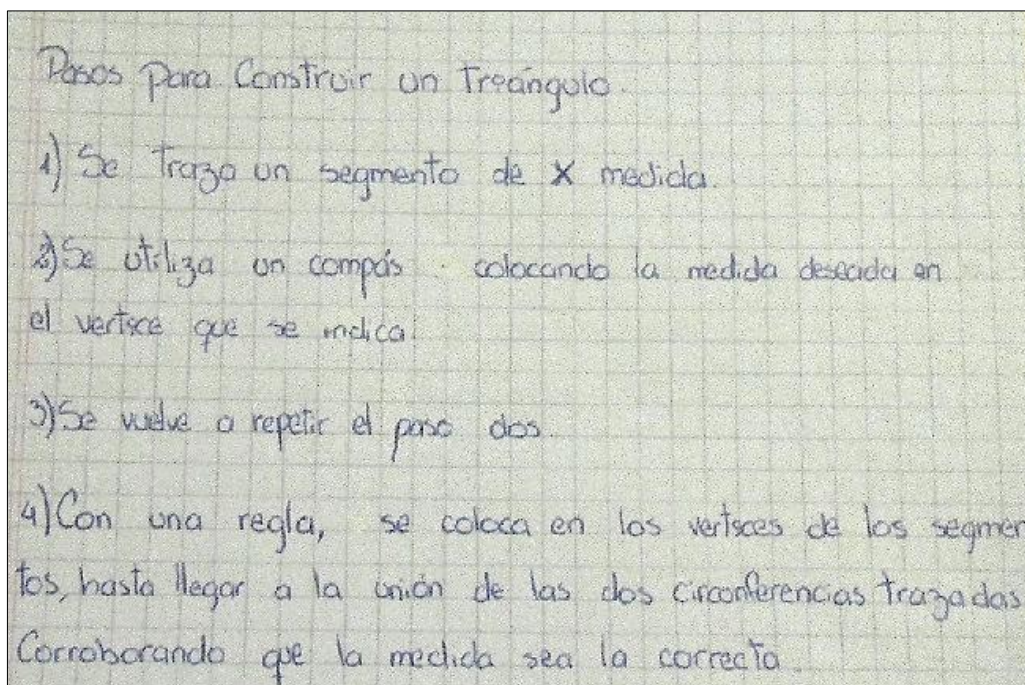 Pasos Para Construir un Treángulo.
1) Se Trazo un segmento de X medida.
2) Se utiliza un compás colocando la medida deseada en
el vertsce que se indica.
3) Se vuelve a repetir el paso dos.
4) Con una regla, se coloca en los vertsces de los segmen
tos, hasta llegar a la unión de las dos circonferencias trazadas
Corroborando que la medida sea la correcta.